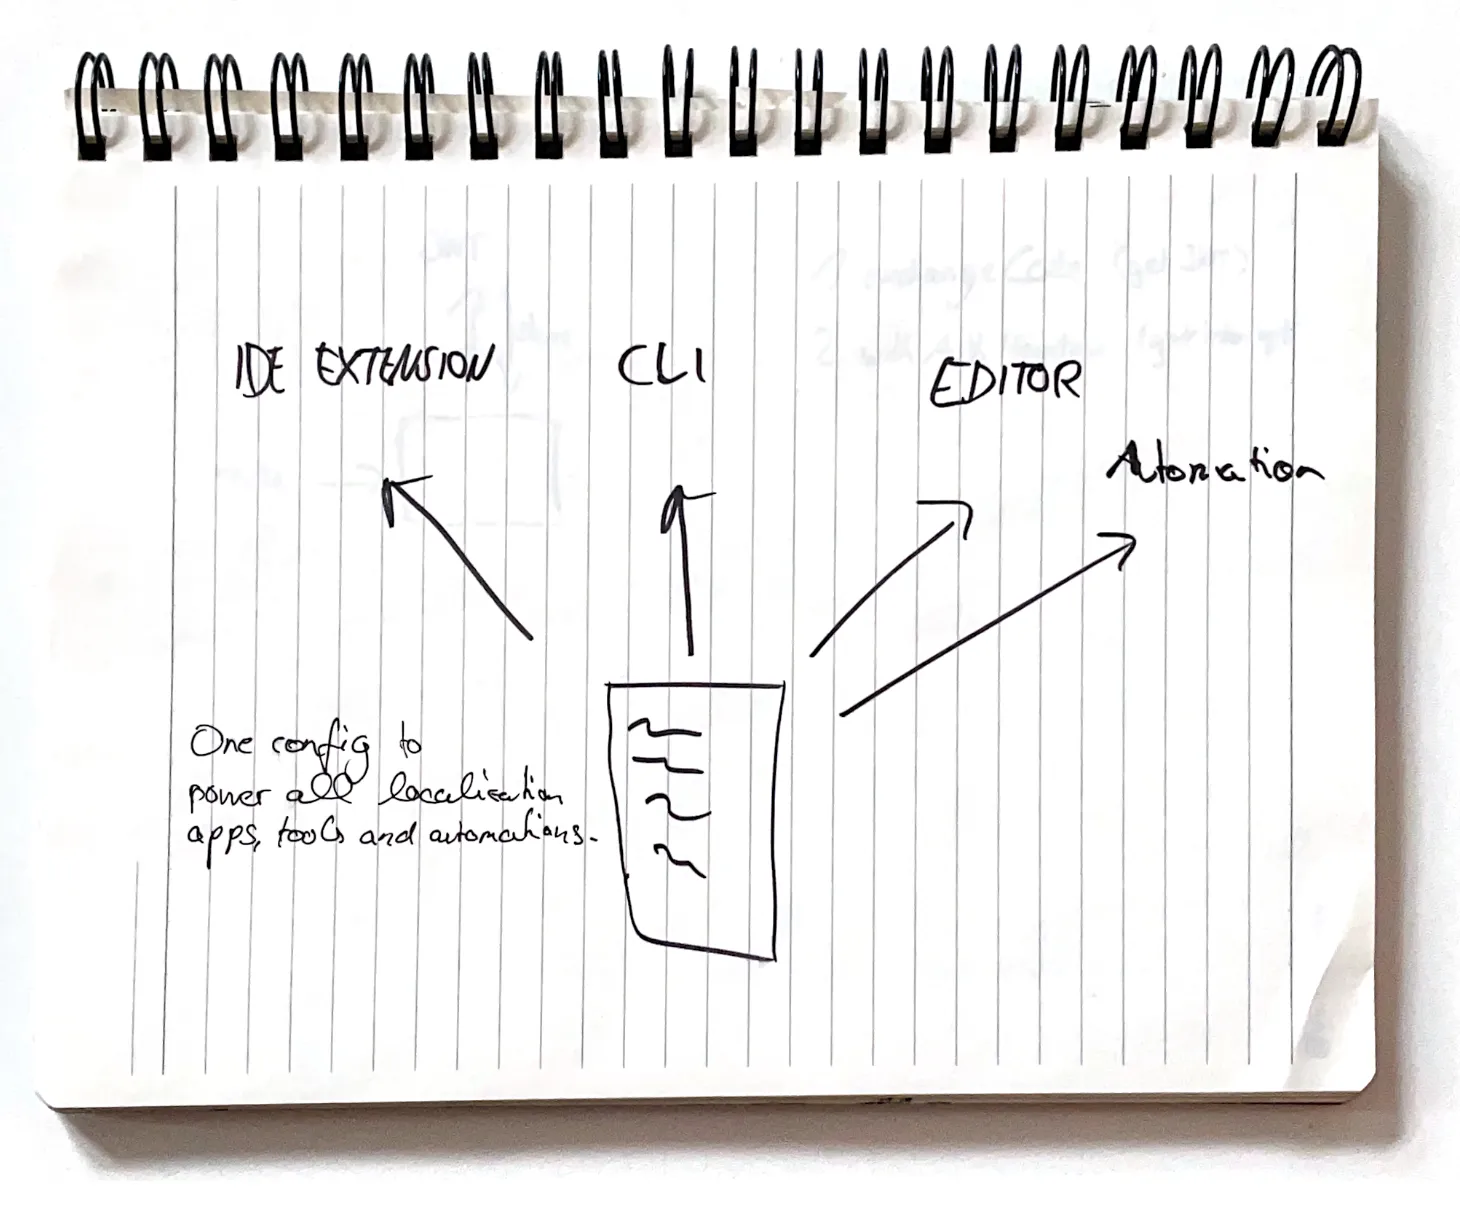 IDE EXTENSION
CLI
EDITOR
Automation
One config to
power all localization
apps, tools and automations.